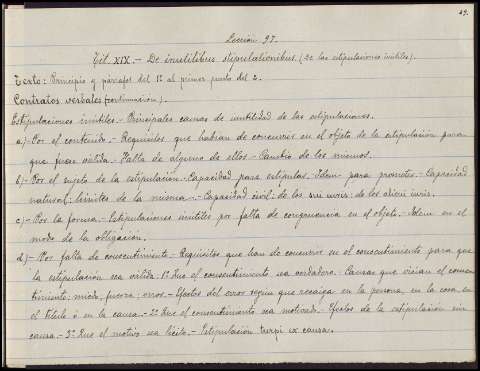 29.
Lección 97.
Tít. XIX. - De inutilibus stipulationibus. (De las estipulaciones inútiles).
Texto: Principio y párrafos del 1º al primer punto del 2.
Contratos verbales (continuación).
Estipulaciones inútiles. - Principales causas de inutilidad de las estipulaciones.
a.) - Por el contenido. - Requisitos que habían de concurrir en el objeto de la estipulación para
que fuese válida. - Falta de alguno de ellos. - Cambio de los mismos.
b) - Por el sujeto de la estipulación. - Capacidad para estipular. Idem para prometer. - Capacidad
natural: límites de la misma. - Capacidad civil: de los sui iuris: de los alieni iuris.
c) - Por la forma. - Estipulaciones inútiles por falta de congruencia en el objeto. - Idem en el
modo de la obligación.
d.) - Por falta de consentimiento. - Requisitos que han de concurrir en el consentimiento para que
la estipulación sea válida. 1º Que el consentimiento sea verdadero. Causas que vician el consen-
timiento: miedo, fuerza, error. - Efectos del error según que recaiga en la persona, en la cosa, en
el título ó en la causa. - 2º Que el consentimiento sea motivado. - Efectos de la estipulación sin
causa. - 3º Que el motivo sea lícito. - Estipulación turpi ex causa.